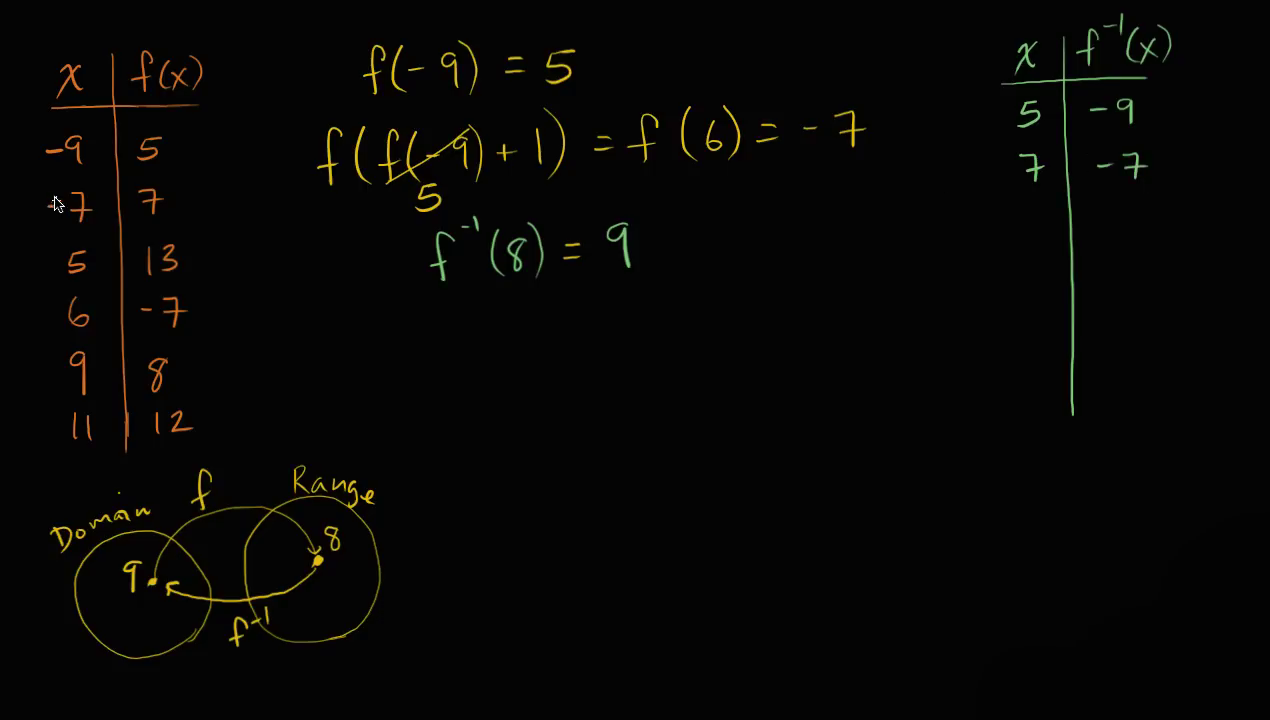 x f(x)
-9 5
-7 7
5 13
6 -7
9 8
11 12
f(-9) = 5
f(f(-9) + 1) = f(6) = -7
5
f⁻¹(8) = 9
x f⁻¹(x)
5 -9
7 -7
f
Domain
Range
9
8
f⁻¹